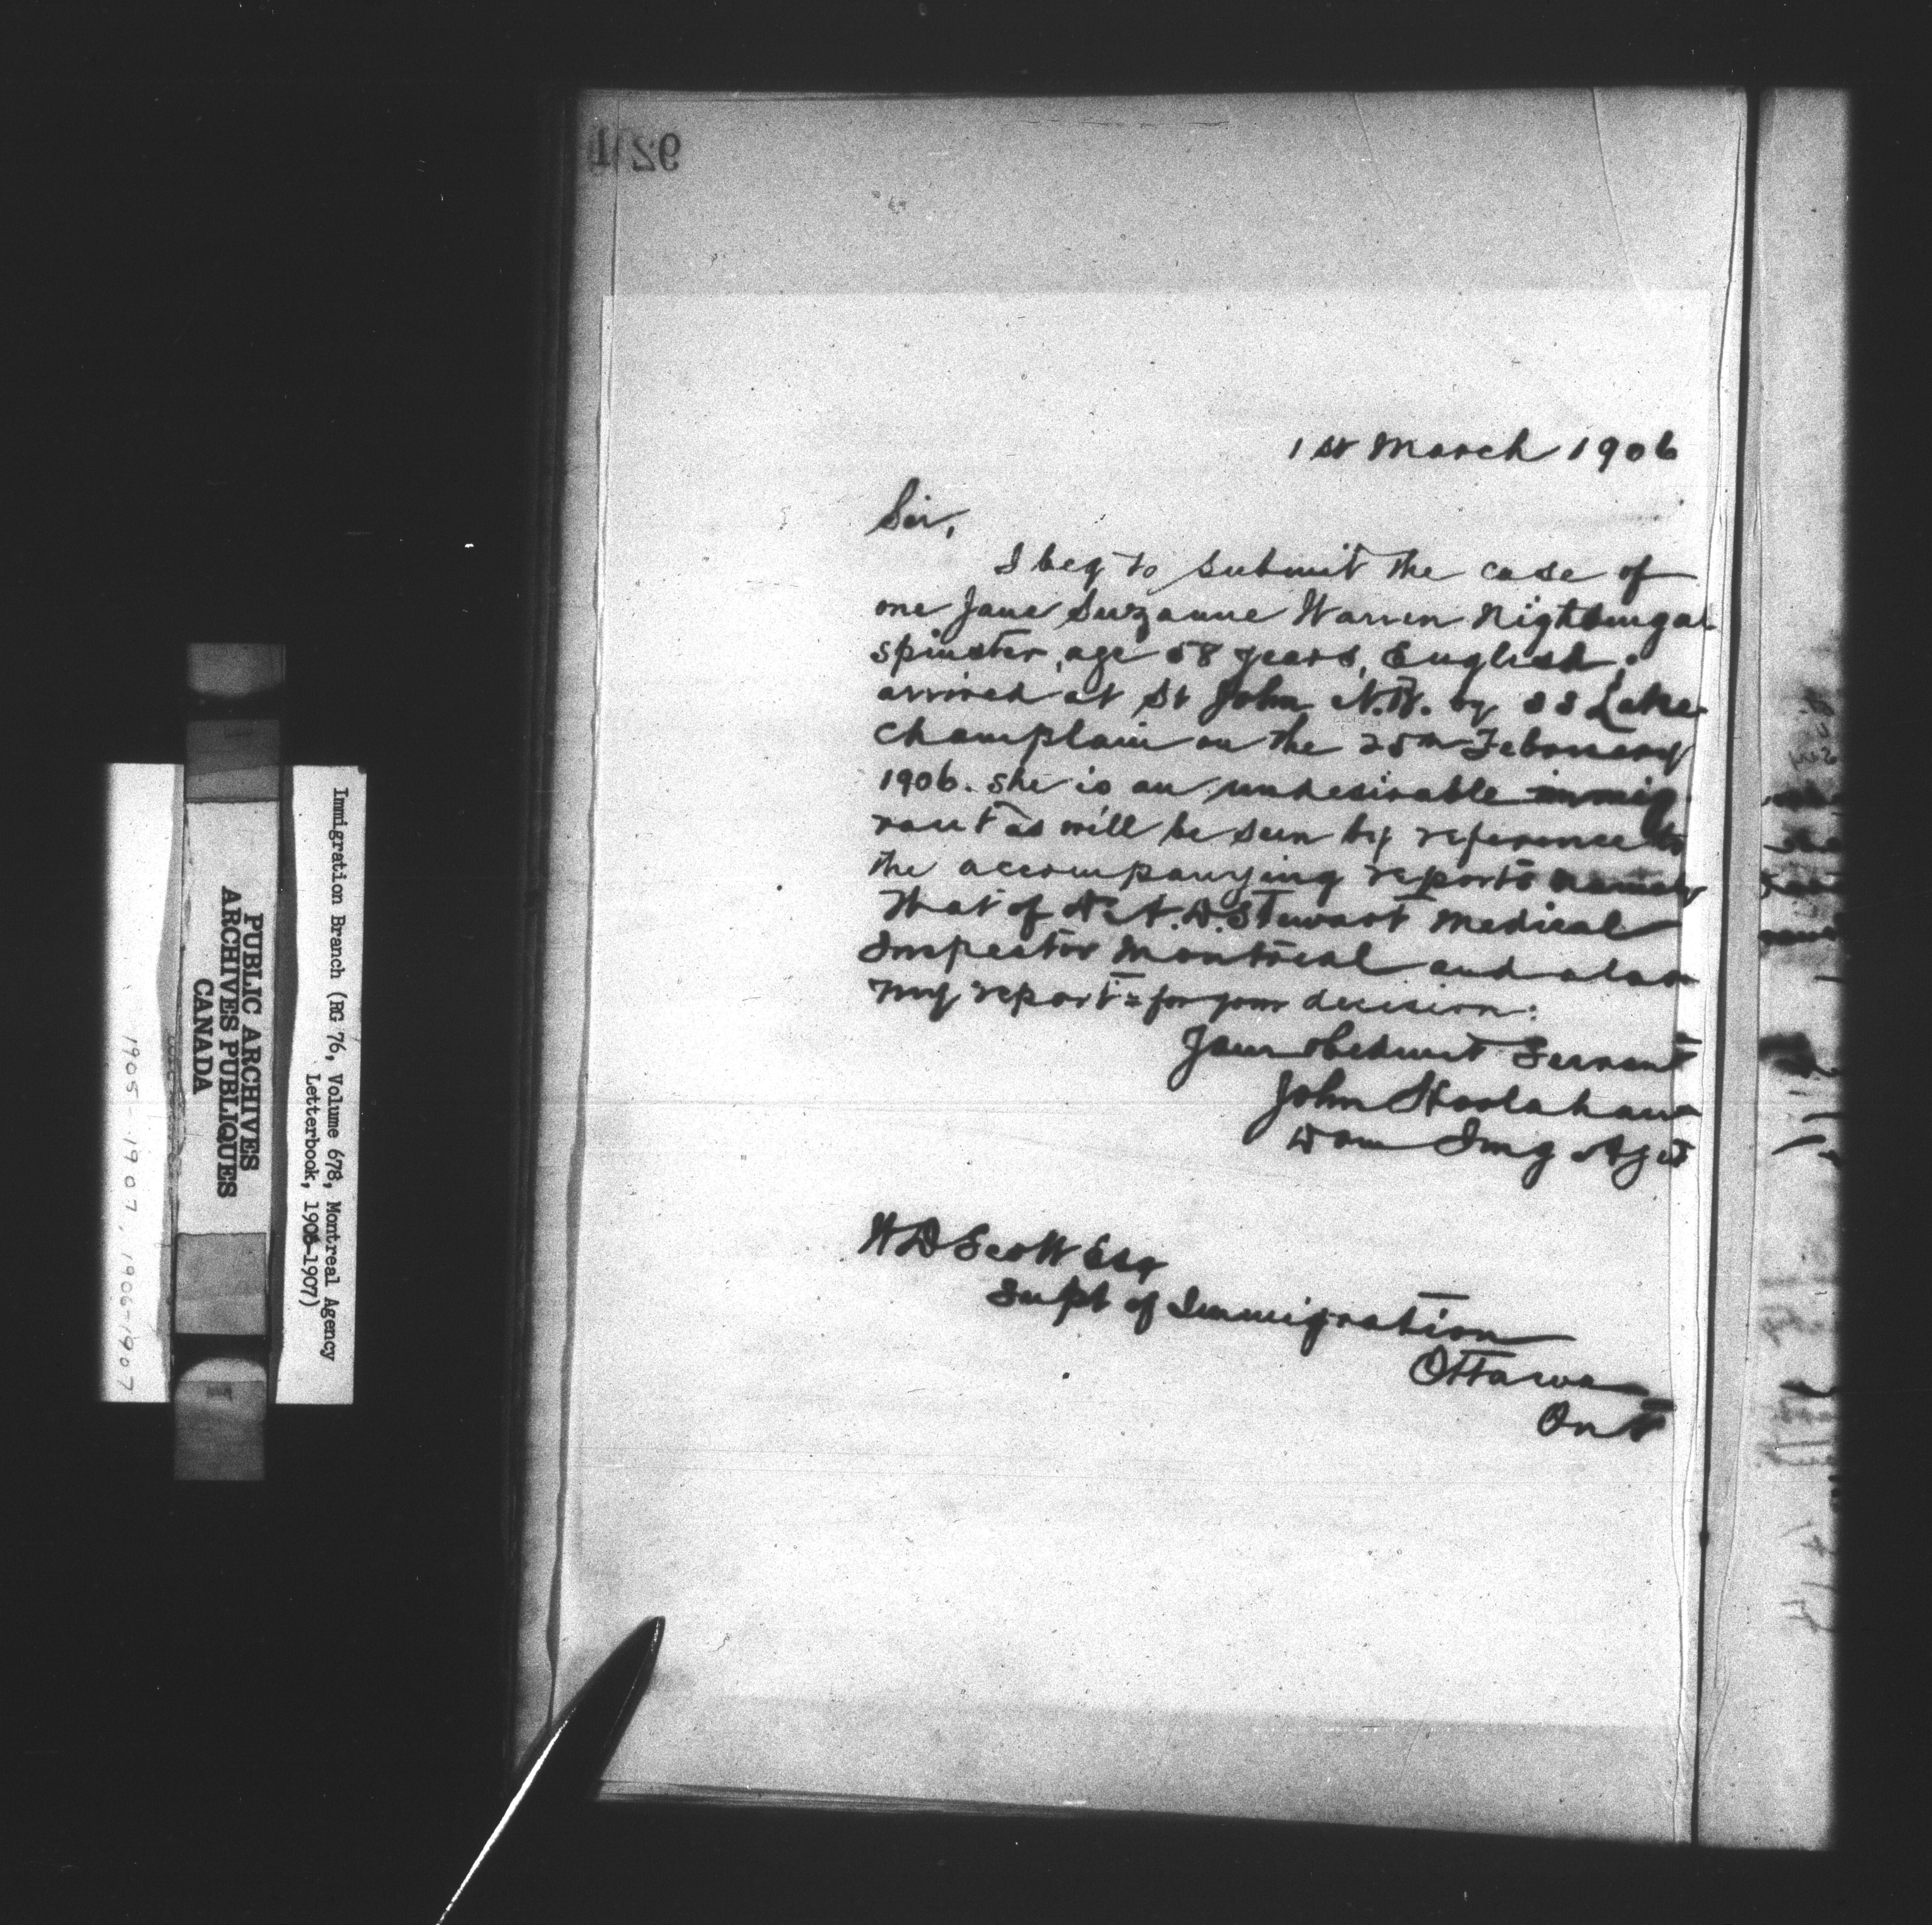 1st March 1906
Sir,
I beg to submit the case of
one Jane Suzanne Warren Nightingal
spinster, age 58 years, English.
arrived at St John N.B. by SS Lake
Champlain on the 25th February
1906. She is an undesirable immig
rant as will be seen by reference to
the accompanying reports namely
that of Dr A.D. Stewart Medical
Inspector Montreal and also
my report = for your decision:
Your obedient Servant
John Hoolahan
Dom Img Agt
W D Scott Esq
Supt of Immigration
Ottawa
Ont
Immigration Branch (RG 76, Volume 678, Montreal Agency
Letterbook, 1906-1907)
PUBLIC ARCHIVES
ARCHIVES PUBLIQUES
CANADA
1905-1907, 1906-1907